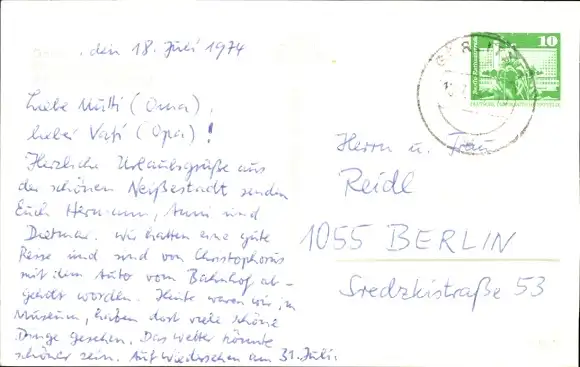 den 18. Juli 1974
Liebe Mutti (Oma),
lieber Vati (Opa)!
Herzliche Urlaubsgrüße aus
der schönen Neißestadt senden
Euch Hermann, Anni und
Dietmar. Wir hatten eine gute
Reise und sind von Christophorus
mit dem Auto vom Bahnhof ab-
geholt worden. Heute waren wir im
Museum, haben dort viele schöne
Dinge gesehen. Das Wetter könnte
schöner sein. Auf Wiedersehen am 31. Juli.
GÖRLITZ
10
Herrn u. Frau
Reidl
1055 BERLIN
Sredzkistraße 53